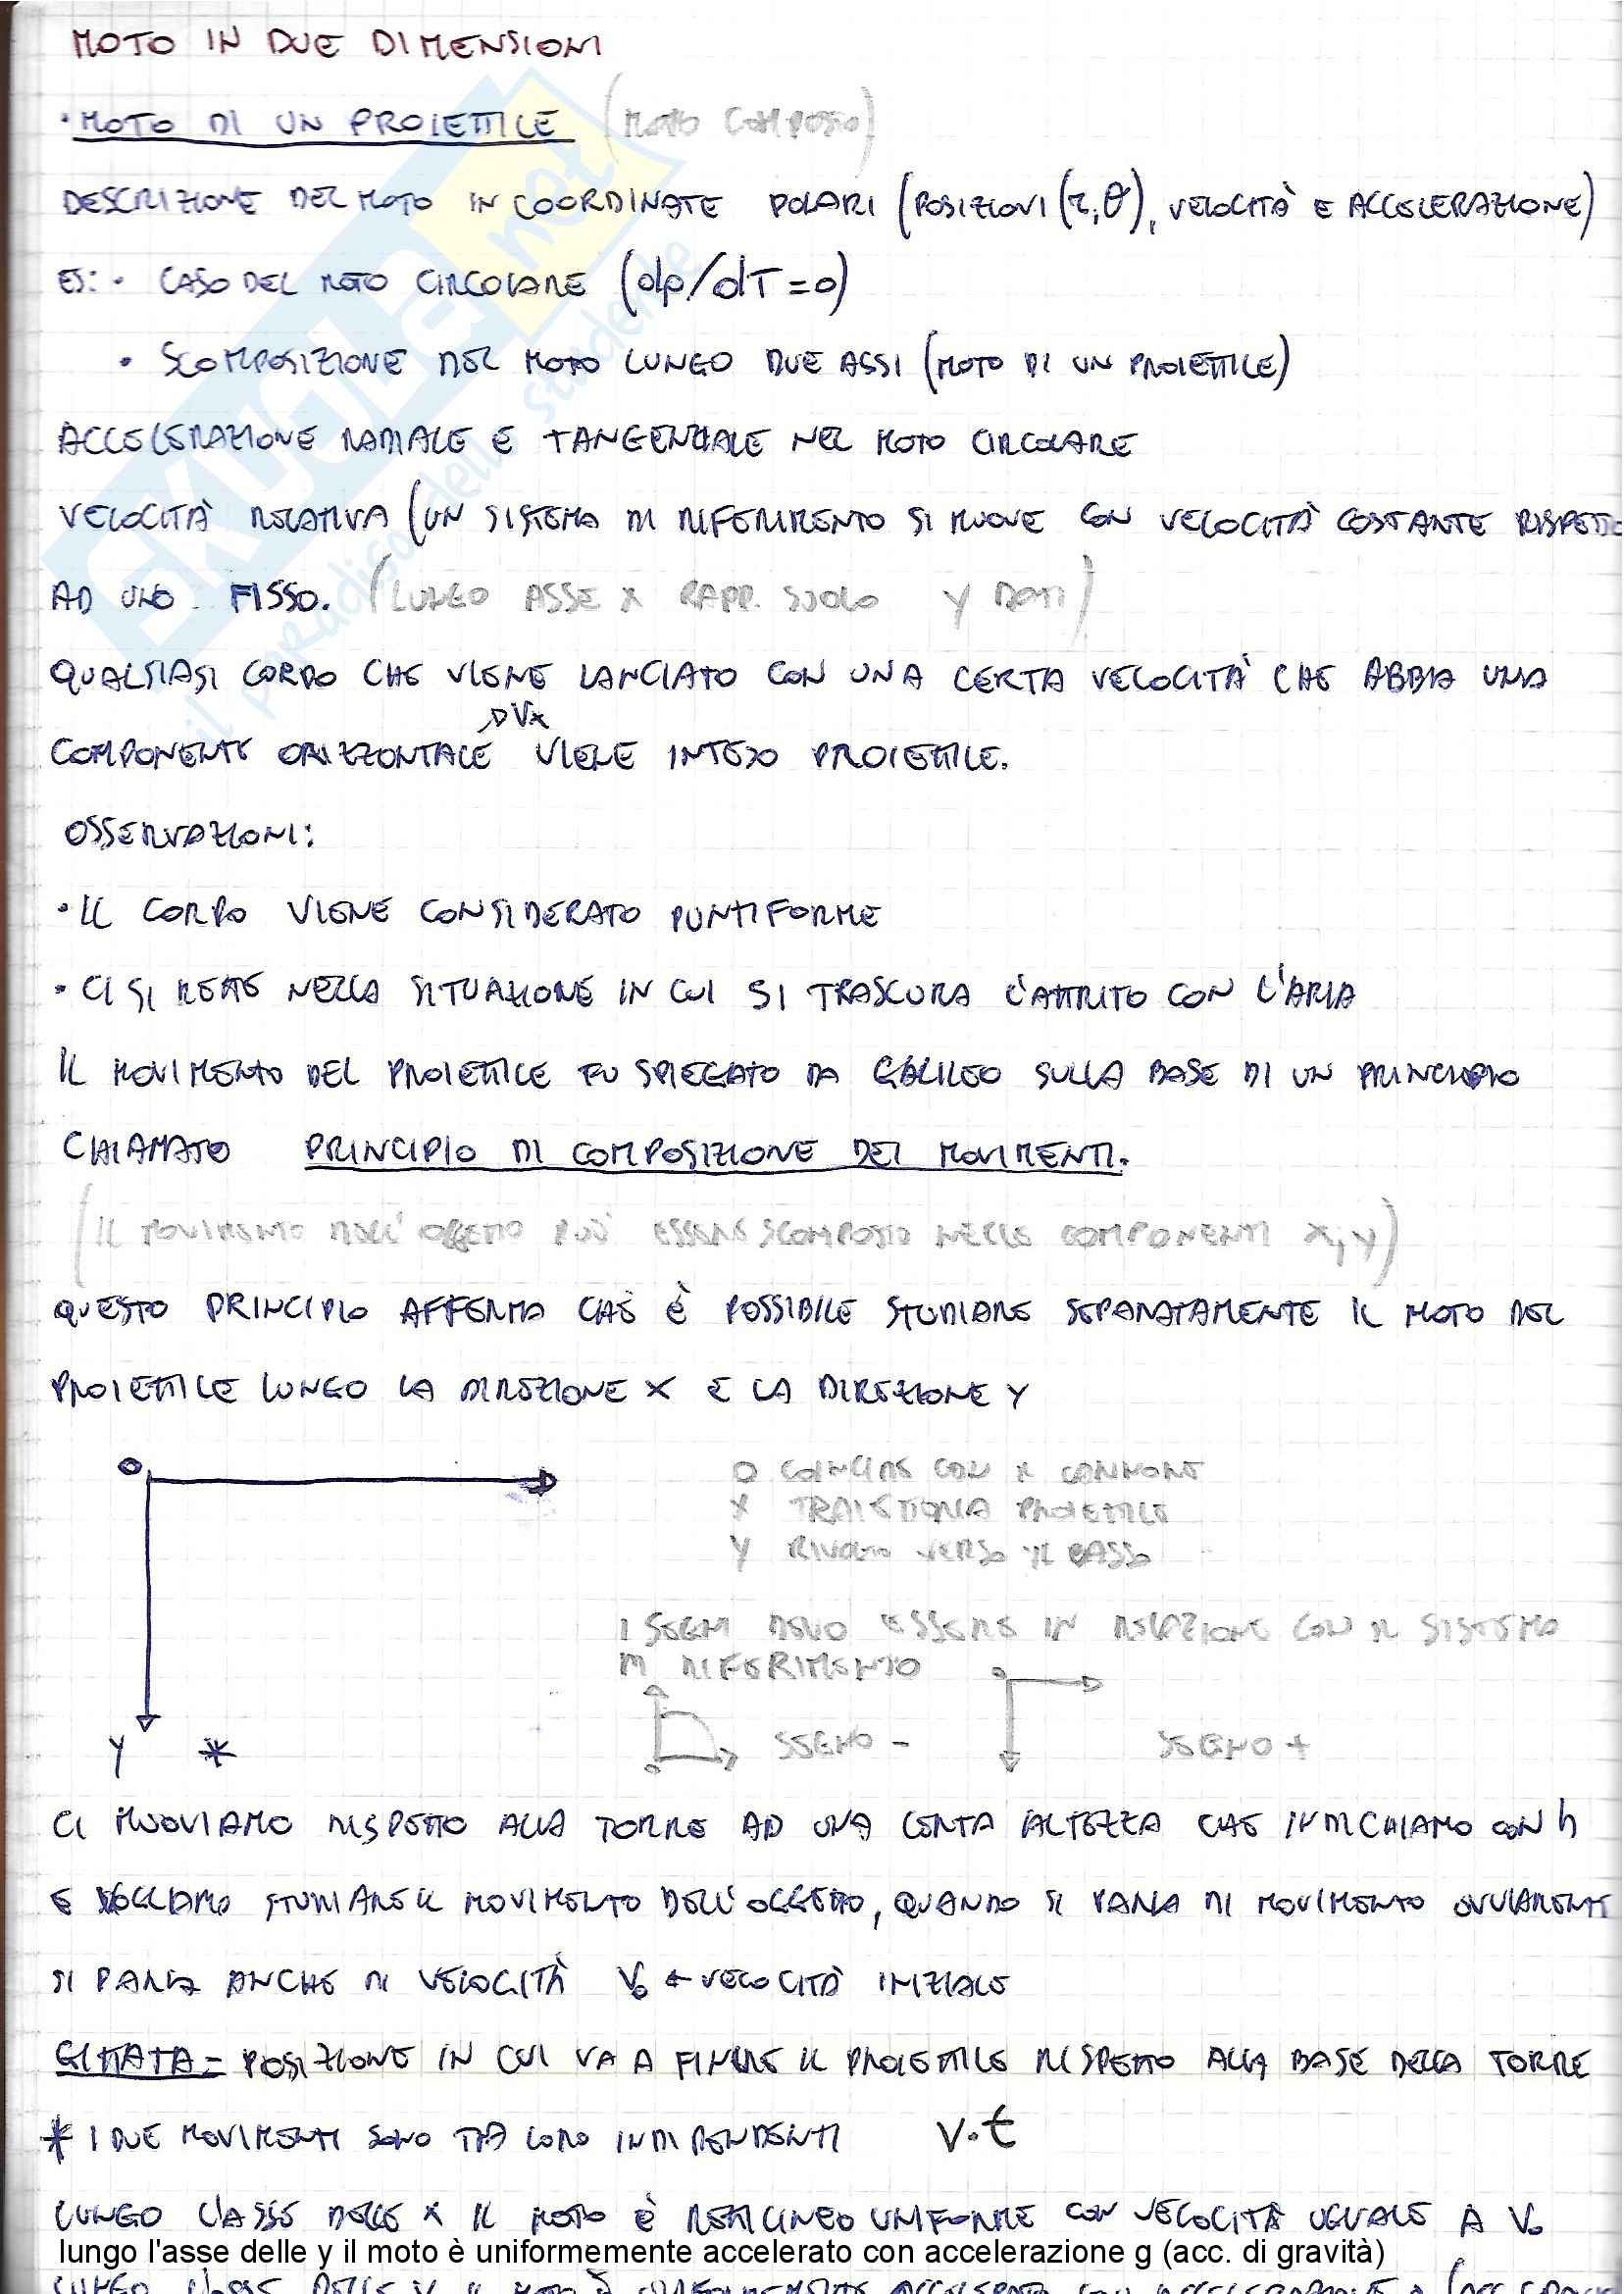 MOTO IN DUE DIMENSIONI
• MOTO DI UN PROIETTILE (MOTO COMPOSTO)
DESCRIZIONE DEL MOTO IN COORDINATE POLARI (POSIZIONI (r,θ), VELOCITÀ E ACCELERAZIONE)
ES: • CASO DEL MOTO CIRCOLARE (dρ/dT=0)
• SCOMPOSIZIONE DEL MOTO LUNGO DUE ASSI (MOTO DI UN PROIETTILE)
ACCELERAZIONE RADIALE E TANGENZIALE NEL MOTO CIRCOLARE
VELOCITÀ RELATIVA (UN SISTEMA DI RIFERIMENTO SI MUOVE CON VELOCITÀ COSTANTE RISPETTO
AD UNO FISSO. (LUNGO ASSE X RAPP. SUOLO Y
QUALSIASI CORPO CHE VIENE LANCIATO CON UNA CERTA VELOCITÀ CHE ABBIA UNA
Vx
COMPONENTE ORIZZONTALE VIENE INTESO PROIETTILE.
OSSERVAZIONI:
• IL CORPO VIENE CONSIDERATO PUNTIFORME
• CI SI METTE NELLA SITUAZIONE IN CUI SI TRASCURA L'ATTRITO CON L'ARIA
IL MOVIMENTO DEL PROIETTILE FU SPIEGATO DA GALILEO SULLA BASE DI UN PRINCIPIO
CHIAMATO PRINCIPIO DI COMPOSIZIONE DEI MOVIMENTI.
(IL MOVIMENTO DELL'OGGETTO PUÒ ESSERE SCOMPOSTO NELLE COMPONENTI X; Y)
QUESTO PRINCIPIO AFFERMA CHE È POSSIBILE STUDIARE SEPARATAMENTE IL MOTO DEL
PROIETTILE LUNGO LA DIREZIONE X E LA DIREZIONE Y
O
O COINCIDE CON X CANNONE
X TRAIETTORIA PROIETTILE
Y RIVOLTO VERSO IL BASSO
I SEGNI DEVO ESSERE IN RELAZIONE CON IL SISTEMA
DI RIFERIMENTO
SEGNO -
SEGNO +
Y *
CI MUOVIAMO RISPETTO ALLA TORRE AD UNA CERTA ALTEZZA CHE INDICHIAMO CON h
E VOGLIAMO STUDIARE IL MOVIMENTO DELL'OGGETTO, QUANDO SI PARLA DI MOVIMENTO OVVIAMENTE
SI PARLA ANCHE DI VELOCITÀ V₀ ← VELOCITÀ INIZIALE
GITTATA = POSIZIONE IN CUI VA A FINIRE IL PROIETTILE RISPETTO ALLA BASE DELLA TORRE
* I DUE MOVIMENTI SONO TRA LORO INDIPENDENTI V·t
LUNGO L'ASSE DELLE X IL MOTO È RETTILINEO UNIFORME CON VELOCITÀ UGUALE A V₀
lungo l'asse delle y il moto è uniformemente accelerato con accelerazione g (acc. di gravità)